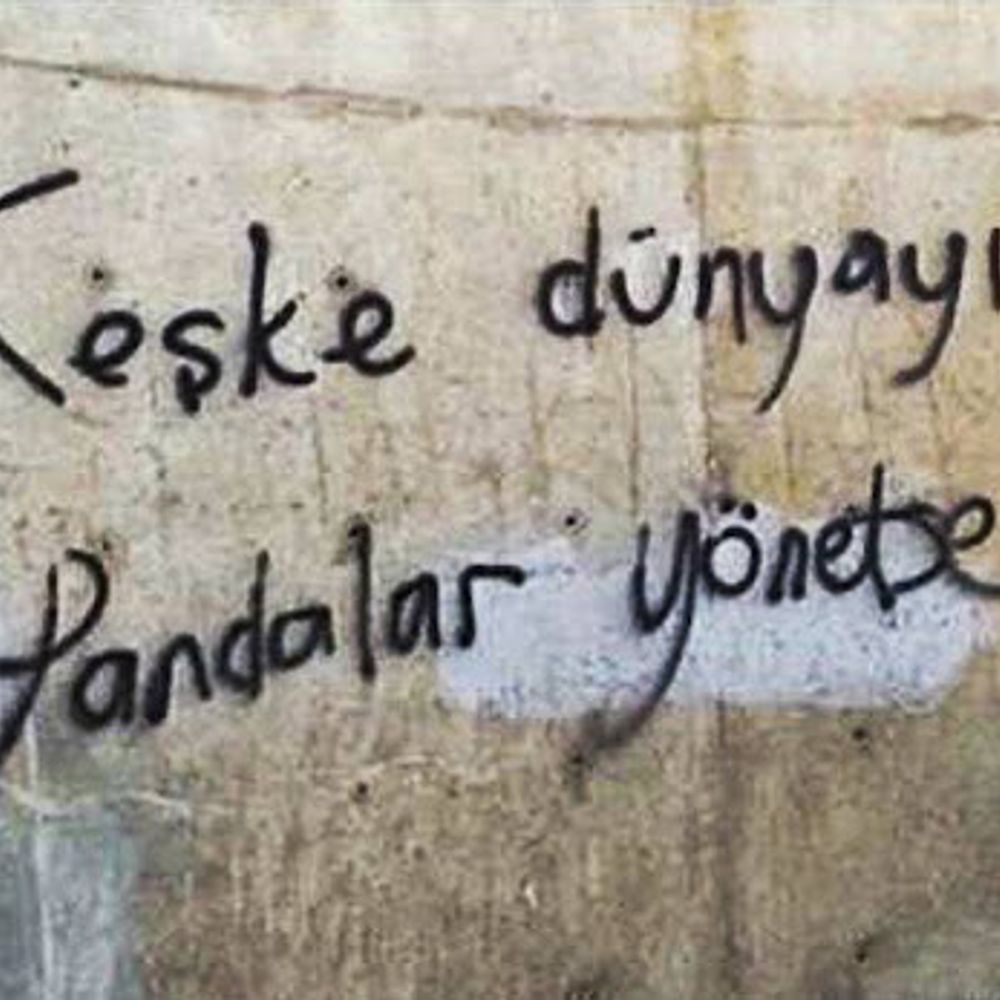 Keşke dünyayı
Pandalar yönetse